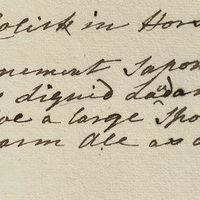 Colick in Hors
nement Sapon
s liquid Laudan
ve a large Spoo
arm Ale as a